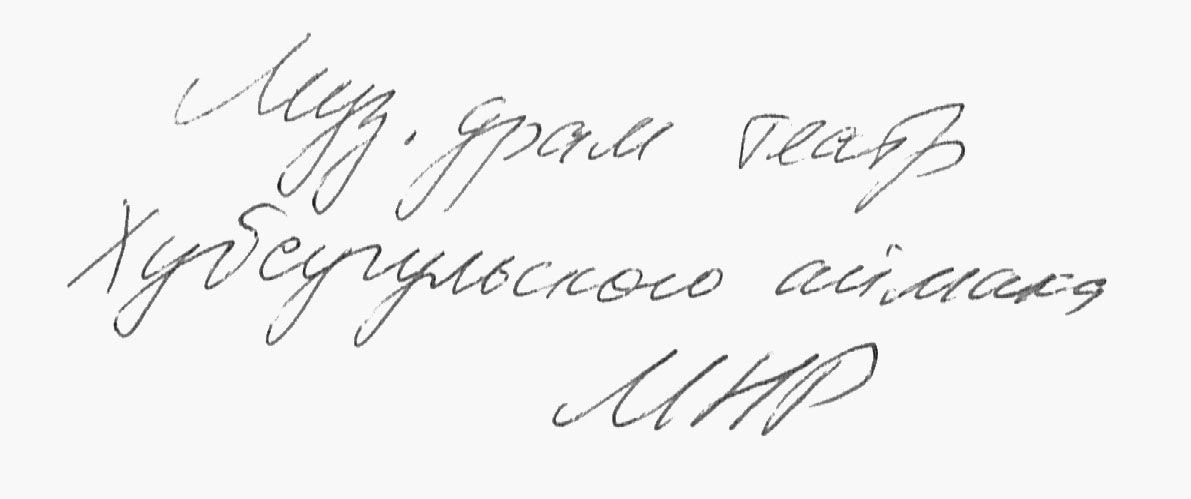 Муз. драм театр
Хубсугульского аймака
МНР